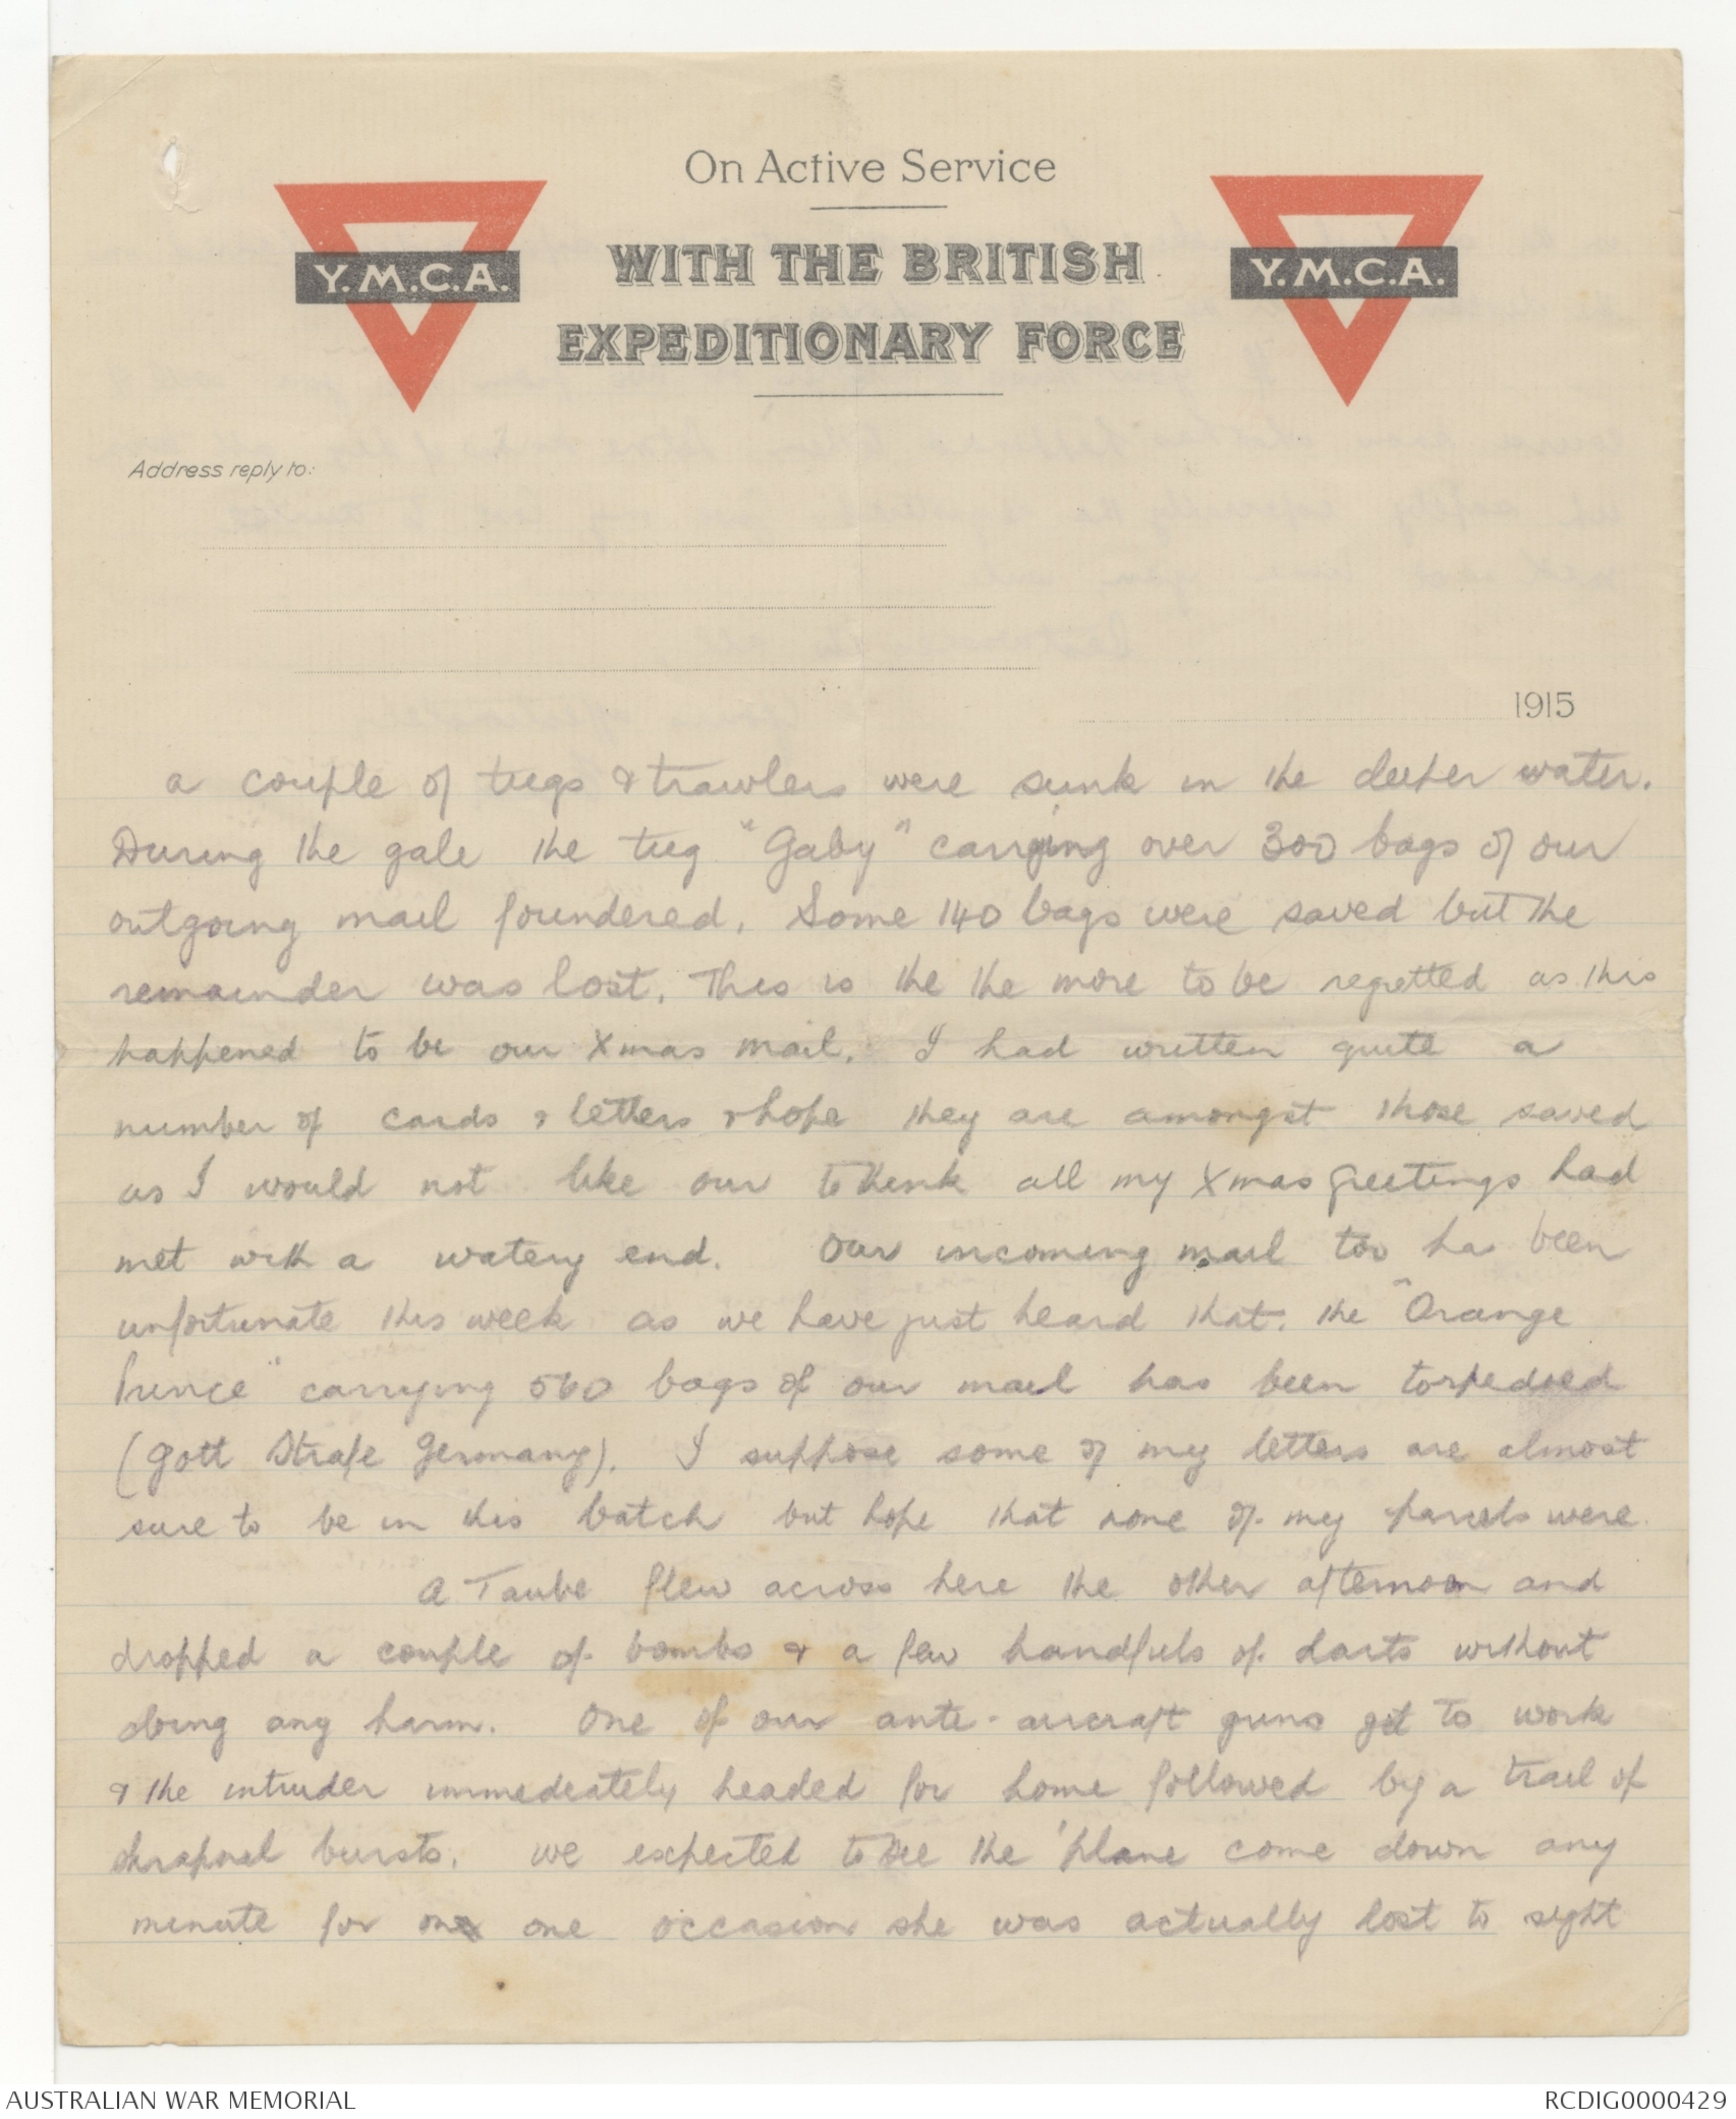 On Active Service
Y.M.C.A.
WITH THE BRITISH
EXPEDITIONARY FORCE
Y.M.C.A.
Address reply to:
1915
a couple of tugs & trawlers were sunk in the deeper water.
During the gale the tug "Gaby" carrying over 300 bags of our
outgoing mail foundered. Some 140 bags were saved but the
remainder was lost. This is the the more to be regretted as this
happened to be our Xmas mail. I had written quite a
number of cards & letters & hope they are amongst those saved
as I would not like our to think all my Xmas greetings had
met with a watery end. Our incoming mail too ha been
unfortunate this week as we have just heard that. the "Orange
Prince" carrying 560 bags of our mail has been torpedoed
(Gott Strafe Germany). I suppose some of my letters are almost
sure to be in this batch but hope that none of my parcels were.
A Taube flew across here the other afternoon and
dropped a couple of bombs & a few handfuls of darts without
doing any harm. One of our ante-aircraft guns got to work
& the intruder immediately headed for home followed by a trail of
shrapnel bursts. We expected to see the 'plane come down any
minute for on one occasion she was actually lost to sight
AUSTRALIAN WAR MEMORIAL
RCDIG0000429